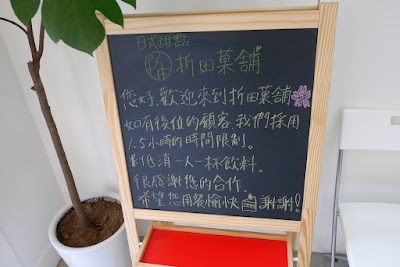 日式甜點
折田菓舖
您好,歡迎來到折田菓舖
如有後位的顧客,我們採用
1.5小時的時間限制。
低消一人一杯飲料。
很感謝您的合作。
希望您用餐愉快 謝謝!